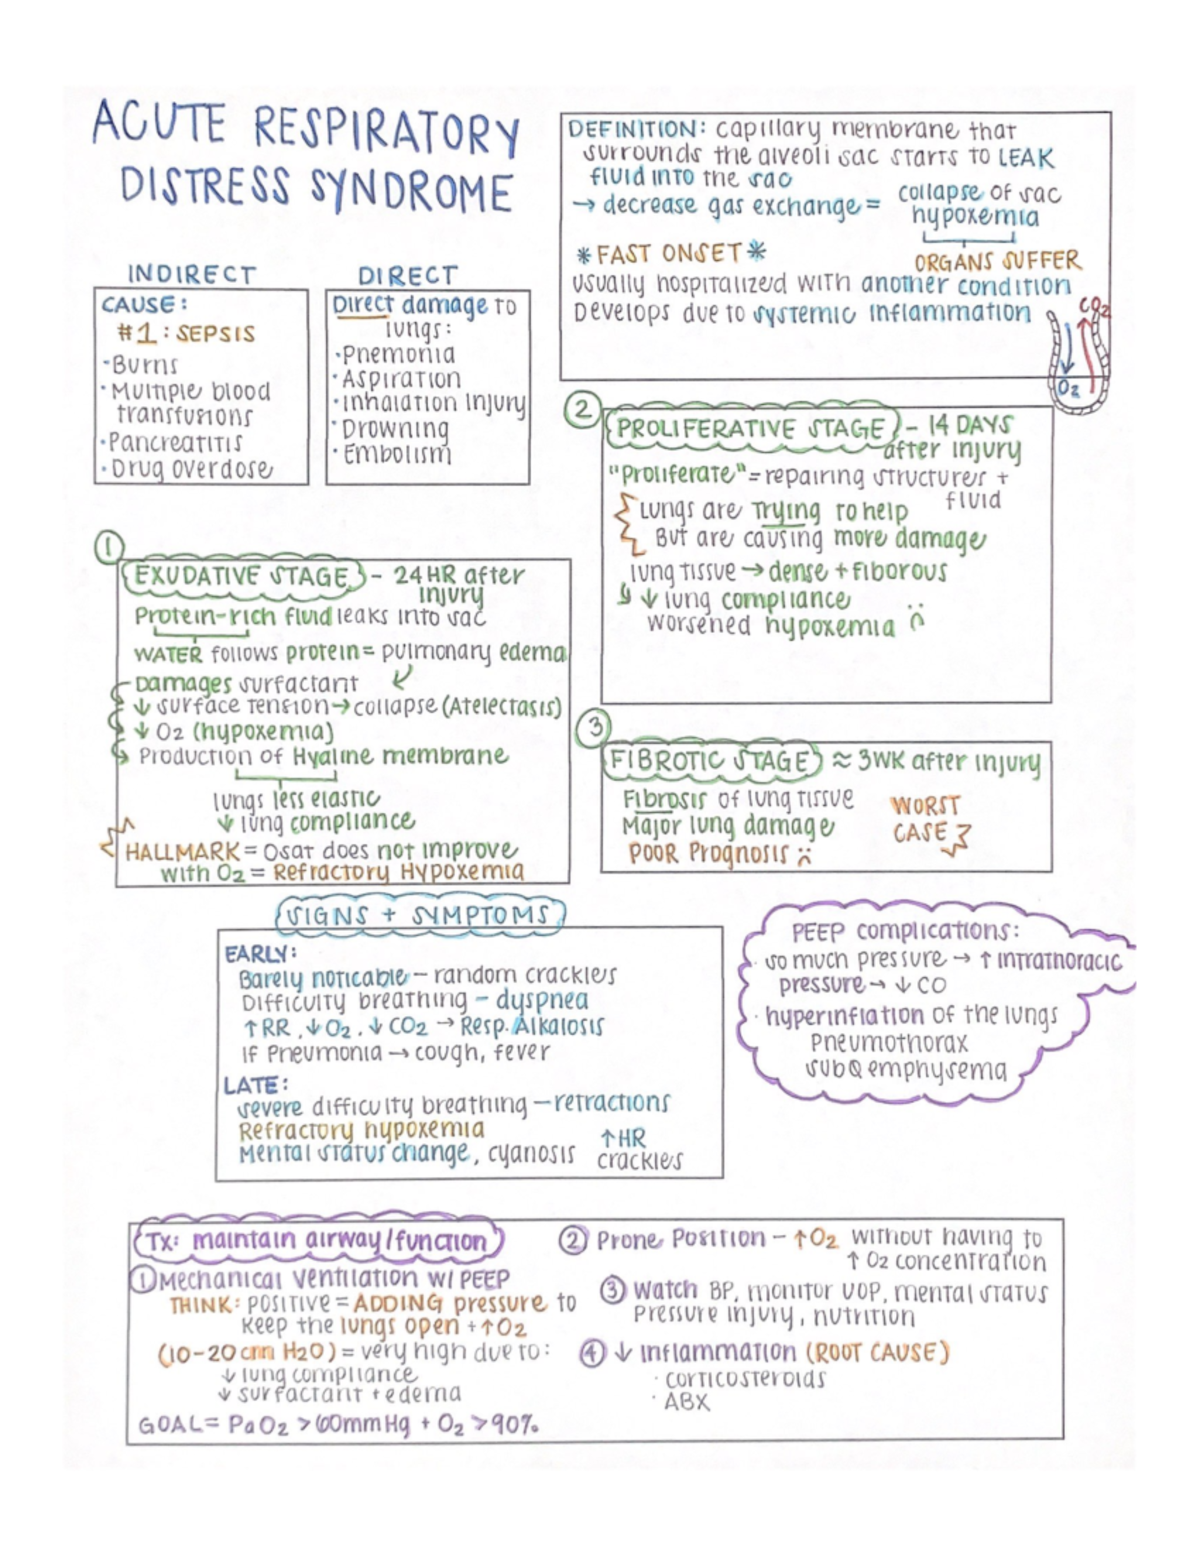 ACUTE RESPIRATORY
DISTRESS SYNDROME
DEFINITION: capillary membrane that
surrounds the alveoli sac starts to LEAK
fluid INTO the sac
→ decrease gas exchange = collapse of sac
hypoxemia
ORGANS SUFFER
*FAST ONSET*
usually hospitalized with another condition
Develops due to systemic inflammation
CO2
O2
INDIRECT
CAUSE:
#1: SEPSIS
·Burns
·Multiple blood
transfusions
·Pancreatitis
·Drug overdose
DIRECT
Direct damage to
lungs:
·Pnemonia
·Aspiration
·Inhalation Injury
·Drowning
·Embolism
①
EXUDATIVE STAGE - 24 HR after
injury
Protein-rich fluid leaks into sac
WATER follows protein = pulmonary edema
Damages surfactant
↓ surface tension → collapse (Atelectasis)
↓ O2 (hypoxemia)
Production of Hyaline membrane
lungs less elastic
↓ lung compliance
HALLMARK = Osat does not improve
with O2 = Refractory Hypoxemia
②
PROLIFERATIVE STAGE - 14 DAYS
after injury
"Proliferate" = repairing structures +
fluid
Lungs are Trying to help
But are causing more damage
lung tissue → dense + fiborous
↓ lung compliance
worsened hypoxemia
③
FIBROTIC STAGE ≈ 3WK after injury
Fibrosis of lung tissue
Major lung damage
POOR Prognosis
WORST
CASE
SIGNS + SYMPTOMS
EARLY:
Barely noticable - random crackles
Difficulty breathing - dyspnea
↑RR, ↓O2, ↓CO2 → Resp. Alkalosis
If Pneumonia → cough, fever
LATE:
severe difficulty breathing - retractions
Refractory hypoxemia
Mental status change, cyanosis
↑HR
crackles
PEEP complications:
· so much pressure → ↑ intrathoracic
pressure → ↓ CO
· hyperinflation of the lungs
Pneumothorax
subQ emphysema
Tx: maintain airway/function
① Mechanical Ventilation w/ PEEP
THINK: POSITIVE = ADDING pressure to
keep the lungs open + ↑O2
(10-20 cm H2O) = very high due to:
↓ lung compliance
↓ surfactant + edema
GOAL = PaO2 > 60mmHg + O2 > 90%
② Prone Position - ↑O2 without having to
↑ O2 concentration
③ Watch BP, monitor UOP, mental status
Pressure injury, nutrition
④ ↓ inflammation (ROOT CAUSE)
· corticosteroids
· ABX